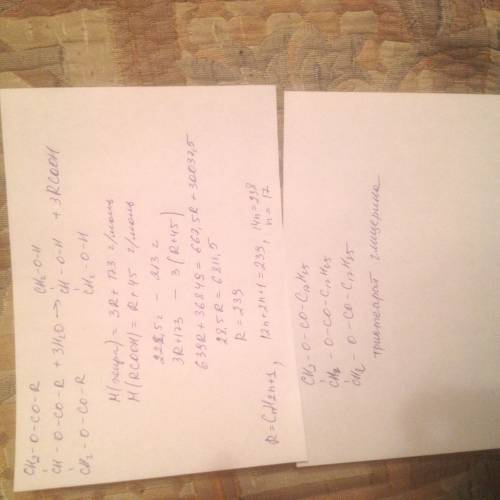 CH₂-O-CO-R CH₂-O-H
CH-O-CO-R + 3H₂O → CH-O-H + 3RCOOH
CH₂-O-CO-R CH₂-O-H
M(жира) = 3R + 173 г/моль
M(RCOOH) = R + 45 г/моль
222,5г - 213г
3R+173 - 3(R+45)
639R + 36849 = 667,5R + 30037,5
28,5R = 6811,5
R = 239
R = CnH2n+1, 12n+2n+1 = 239, 14n = 238
n = 17
CH₂-O-CO-C₁₇H₃₅
CH₂-O-CO-C₁₇H₃₅
CH₂-O-CO-C₁₇H₃₅
тристеарат глицерина